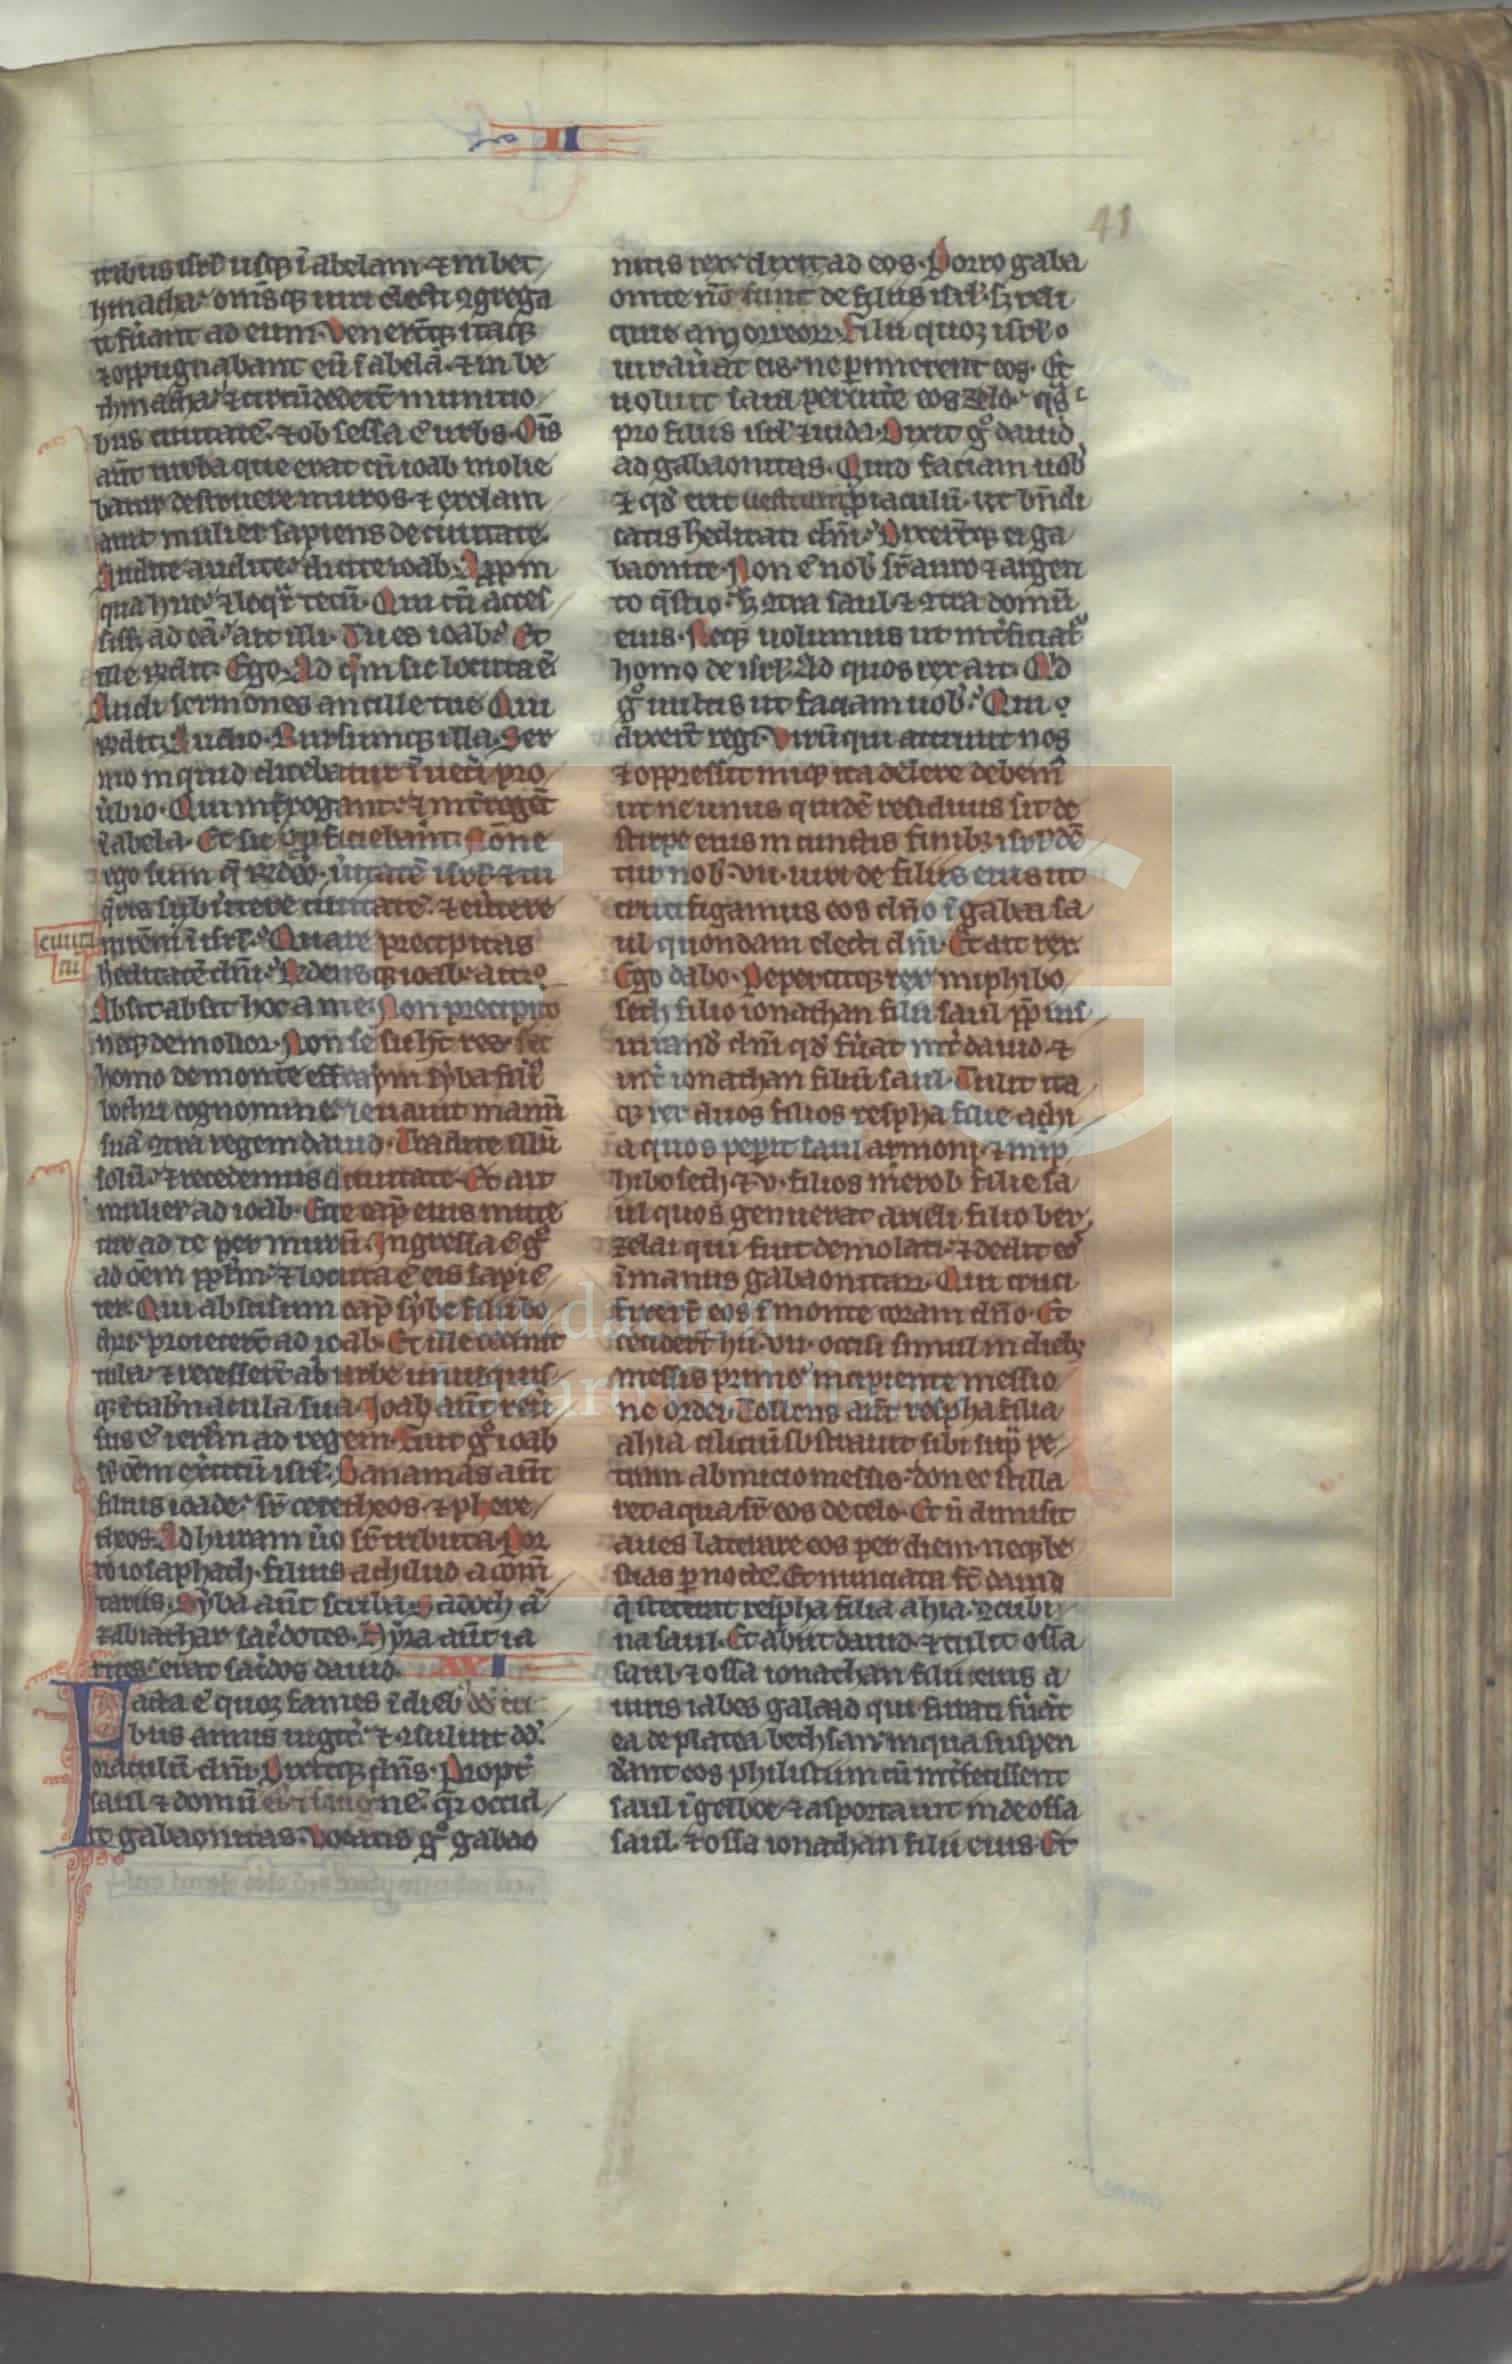 II
41
tribus isrł usq; ī abelam ⁊ in bet
hmacha. om̄sq; uiri electi ꝯgrega
ti fūant ad eum. Venerūtq; itaq;
⁊ oppugnabant eū ī abelā. ⁊ in be
thmacha. ⁊ circūdedert̄ munitio
bus ciuitatē. ⁊ obsessa ē urbs. Om̄is
aūt turba que erat cū ioab molie
batur destruere muros. ⁊ exclam
auit mulier sapiens de ciuitate.
Audite audite. dicite ioab. Appin
qua huc. ⁊ loqr̄ tecū. Qui cū acces
siss; ad eā. ait illi. Tu es ioab. Et
ille rn̄dit. Ego. Ad qm̄ sic locuta ē.
Audi sermones ancille tue. Qui
rn̄dit. Audio. Rursumq; illa. Ser
mo inquid dicebatur ī uet̄i pro
ūbio. Qui int̄rogant. int̄rogēt
ī abela. Et sic pficiebant. Nōne
ego sum q̄ rn̄deo. ūitatē isrł. ⁊ tu
q̄ris sybūtere ciuitatē. ⁊ eūtere
mrēm ī isrł. Quare precipitas
heditatē dn̄i. Rn̄densq; ioab. ait.
Absit absit hoc a me. Non precipito
neq; demolior. Non se sic h̄t res. set
homo de monte effraym syba filiꝰ
bochri cognomine. leuauit manū
suā ꝯtra regem dauid. Tradite illū
solū. ⁊ recedemus a ciuitate. Et ait
mulier ad ioab. Ecce cap̄ eius mitte
tur ad te per murū. Ingressa ē gͦ
ad oēm pplm̄. ⁊ locuta ē eis sapiē
ter. Qui abscisum cap̄ sybe filii bo
chri proiecert̄ ad ioab. Et ille cecinit
tuba. ⁊ recessert̄ ab urbe unusquis
q; ī tab̄nacula sua. Ioab aūt reū
sus ē ierłm ad regem. Fuit gͦ ioab
sr̄ oēm exercitū isrł. Banaias aūt
filius ioade. sr̄ ceretheos. ⁊ phele
theos. Adhuram ūo sr̄ tributa. Por
ro iosaphach. filius achilud a com̄
tariis. Syba aūt scriba. Sadoch ā
⁊ abiathar sacdotes. Hyra aūt ia
rites. erat sacdos dauid. XXI
Facta ē quoꝫ fames ī dieb; dd tri
bus annis iugit̄. ⁊ ꝯsuluit dd.
oraculū dn̄i. Dixitq; dn̄s. Propt̄
saul ⁊ domū ei. ne. qr̄ occid
it gabaonitas. Vocatis gͦ gabao
ciuita
tē
nitis rex. dixit ad eos. Porro gaba
onite nō sunt de filiis isrł. s; reli
quie amorreor. Filii quoꝫ isrł.
iurauāt eis. ne pimerent eos. Et
uoluit saul percutē eos zelo. qͥsi
pro filiis isrł ⁊ iuda. Dixit gͦ dauid
ad gabaonitas. Quid faciam uob
⁊ qd̄ erit uestrum piaculū. ut bn̄di
catis heditati dn̄i. Dixerūtq; ei ga
baonite. Non ē nob sr̄ auro ⁊ argen
to q̄stio. s; ꝯtra saul. ⁊ ꝯtra domū
eius. Neq; uolumus ut int̄ficiat
homo de isrł. Ad quos rex ait. Qd
gͦ uultis ut faciam uob. Qui.
dixert̄ regi. Virū qui attriuit nos
⁊ oppressit iniq; ita delere debem̄
ut ne unus quidē residuus sit de
stirpe eius in cunctis finib; isrł. Dē
tur nob. vii. uiri de filiis eius ut
crucifigamus eos dn̄o ī gabaa sa
ul quondam electi dn̄i. Et ait rex.
Ego dabo. Pepercitq; rex miphibo
seth filio ionathan filii saul. pp̄ ius
iurand dn̄i qd̄ fūat int̄ dauid. ⁊
int̄ ionathan filiū saul. Tulit ita
q; rex duos filios respha filie achi
a quos pepit saul. armoni. ⁊ mip
hiboseth. ⁊ v. filios merob filie sa
ul quos genuerat arieli filio ber
zelai qui fuit de molati. ⁊ dedit eoˢ
ī manus gabaonitarꝝ. Qui cruci
fixert̄ eos ī monte coram dn̄o. Et
cecidert̄ hii. vii. occisi simul in dieb;
messis prime. incipiente messio
ne ordei. Tollens aūt respha filia
ahia ciliciū sbstrauit sibi sup pe
tram ab inicio messis. donec stilla
ret aqua sr̄ eos de celo. Et n̄ dimisit
aues lacerare eos per diem. neq; be
stias p nocte. Et nunciata st̄ dauid
q̄ fecerat respha filia ahia ꝯcubi
na saul. Et abiit dauid. ⁊ tulit ossa
saul. ⁊ ossa ionathan filii eius a
uiris iabes galaad qui furati fūāt
ea de platea bethsan. in qua suspen
d̄ant eos philistiim cū int̄fecissent
saul ī gelboe. ⁊ asportauit inde ossa
saul. ⁊ ossa ionathan filii eius. Et
FLG
Fundación
Lázaro Galdiano